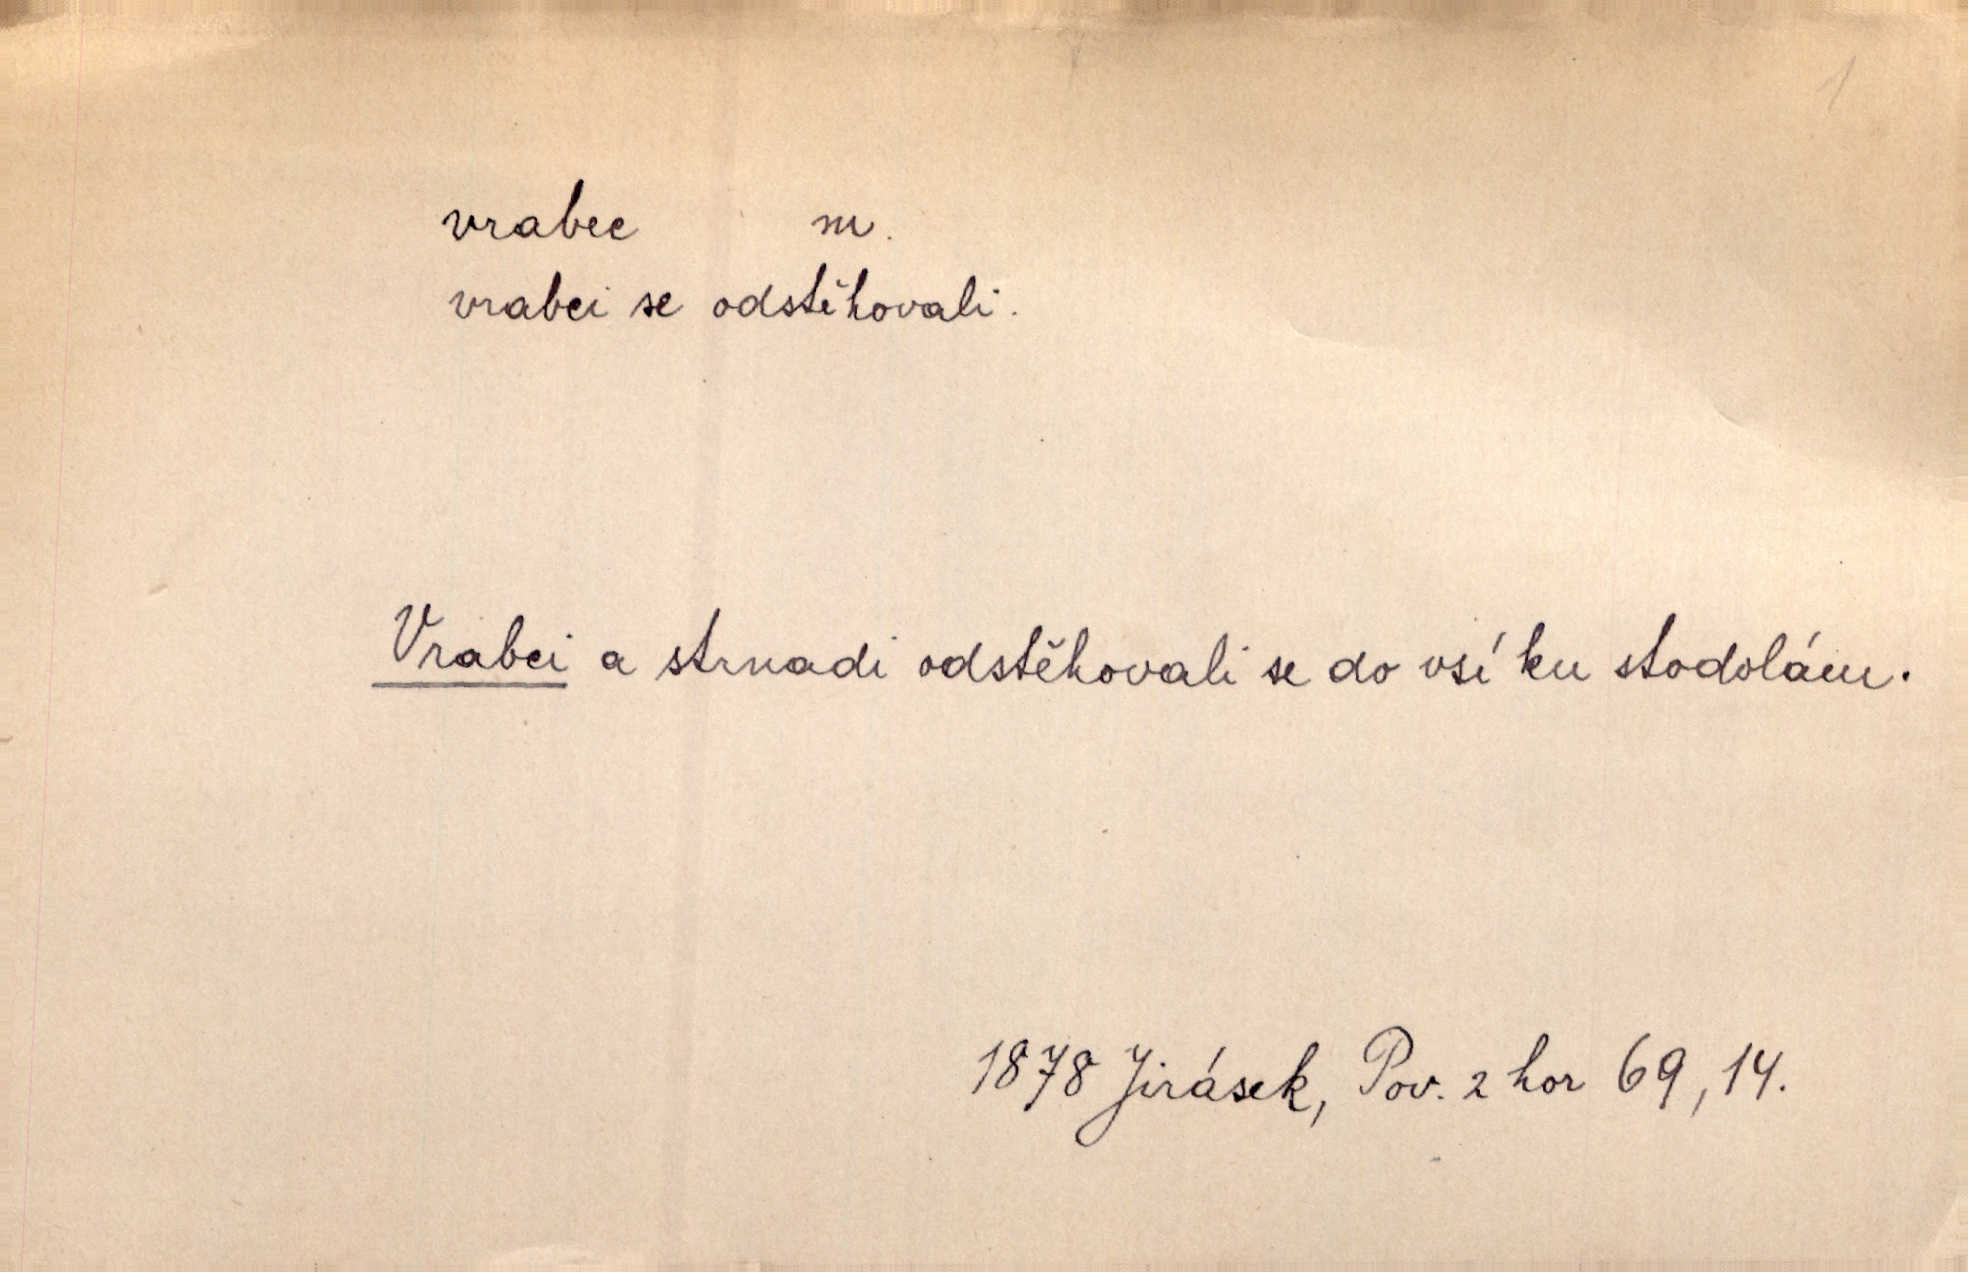 vrabec m.
vrabci se odstěhovali.
Vrabci a strnadi odstěhovali se do vsí ku stodolám.
1878 Jirásek, Pov. z hor 69, 14.